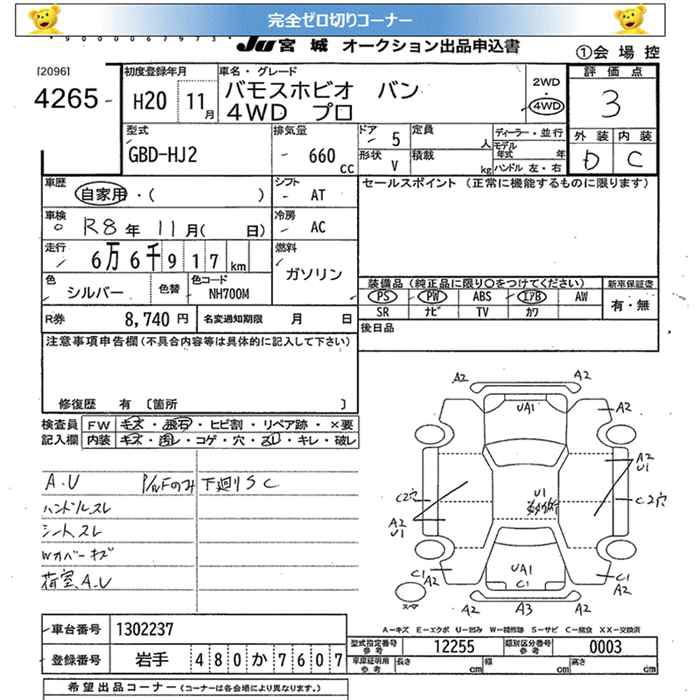 完全ゼロ切りコーナー
JU 宮城 オークション出品申込書
①会場控
[2096]
4265-
初度登録年月
H20 11月
車名・グレード
バモスホビオ バン
4WD プロ
2WD
・
4WD
評価点
3
外装 内装
D C
型式
GBD-HJ2
排気量
- 660 cc
ドア
5
定員
人
ディーラー・並行
モデル年式 年
形状
V
積載
kg
ハンドル 左・右
車歴
自家用・( )
シフト
- AT
セールスポイント (正常に機能するものに限ります)
車検
R8年 11月( 日)
冷房
AC
走行
6万6千917km
燃料
ガソリン
色
シルバー
色替
色コード
NH700M
装備品(純正品に限り○をつけてください)
新車保証書
PS PW ABS エアB AW
SR ナビ TV カワ
有・無
R券 8,740円
名変通知期限 月 日
後日品
注意事項申告欄(不具合内容等は具体的に記入して下さい)
修復歴 有 〔箇所 〕
検査員
記入欄
FW キズ・飛石・ヒビ割・リペア跡・×要
内装 キズ・汚レ・コゲ・穴・スレ・キレ・破レ
A.U P/WFのみ 下廻りSC
ハンドルスレ
シートスレ
Wカバーキズ
荷室A.U
A2 A2
UA1
A2 A2
A2
U1
C2穴 C2穴
U1
A2
U1
UA1
C1
C1 C1
A2 A2
A2 A3 A2
スペア
A−キズ E−エクボ U−凹み W−補修跡 S−サビ C−腐食 XX−交換済
車台番号 1302237
登録番号 岩手 480か7607
型式指定番号
参考
12255
類別区分番号
参考
0003
車庫証明用
参考
長さ cm 幅 cm 高さ cm
希望出品コーナー(コーナーは各会場により異なります。)